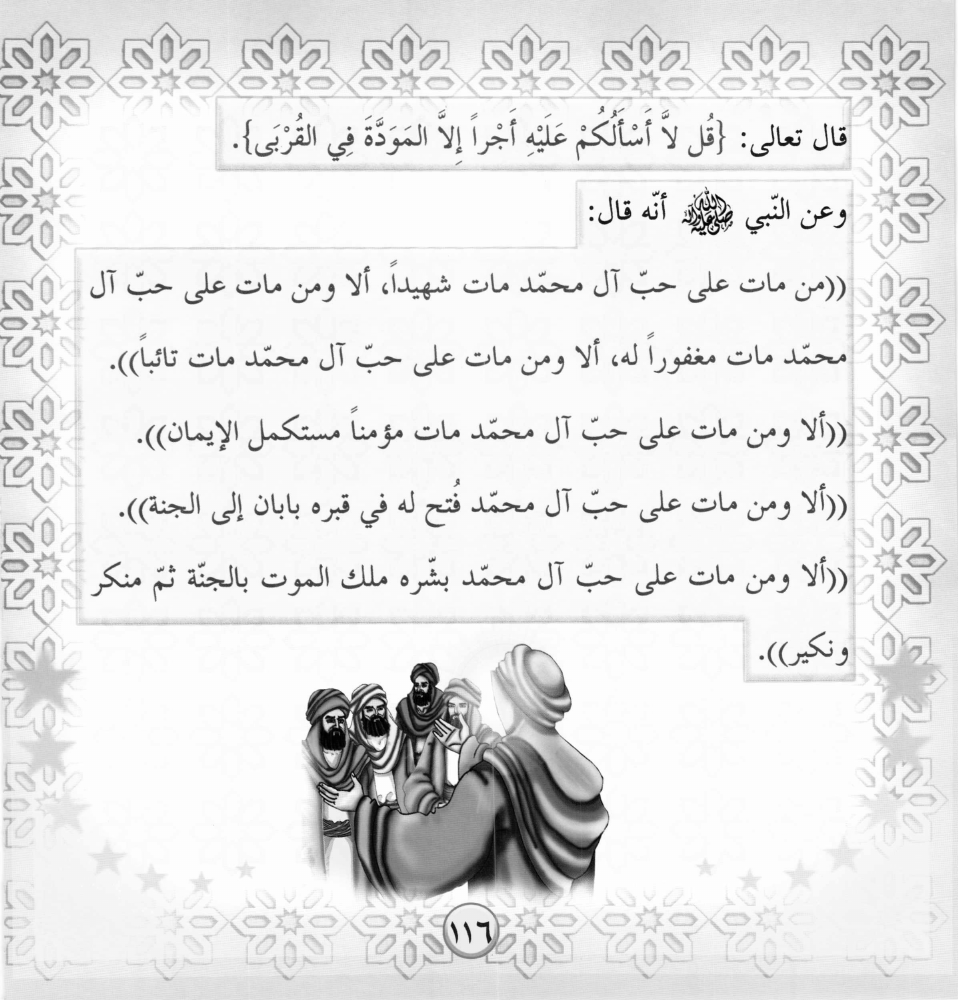 قال تعالى: {قُل لاَّ أَسْأَلُكُمْ عَلَيْهِ أَجْراً إِلاَّ المَوَدَّةَ فِي القُرْبَى}.
وعن النّبي صلى الله عليه وآله أنّه قال:
((من مات على حبّ آل محمّد مات شهيداً، ألا ومن مات على حبّ آل
محمّد مات مغفوراً له، ألا ومن مات على حبّ آل محمّد مات تائباً)).
((ألا ومن مات على حبّ آل محمّد مات مؤمناً مستكمل الإيمان)).
((ألا ومن مات على حبّ آل محمّد فُتح له في قبره بابان إلى الجنة)).
((ألا ومن مات على حبّ آل محمّد بشّره ملك الموت بالجنّة ثمّ منكر
ونكير)).
١١٦